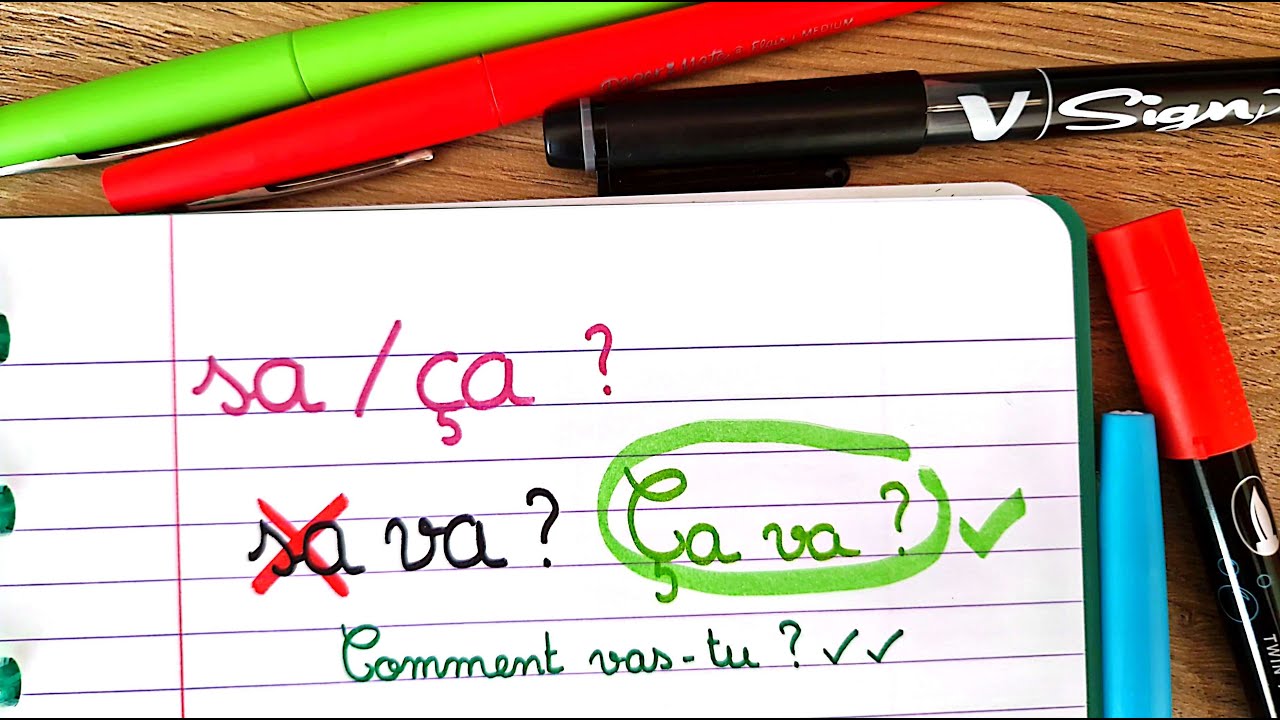 Paper Mate ® Flair • MEDIUM
V Sign
sa / ça ?
sa va ? Ça va ? ✓
Comment vas-tu ? ✓✓
TWIN